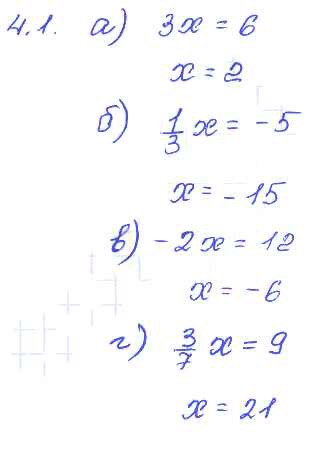 4.1. а) 3x = 6
x = 2
б) 1/3 x = -5
x = -15
в) -2x = 12
x = -6
г) 3/7 x = 9
x = 21